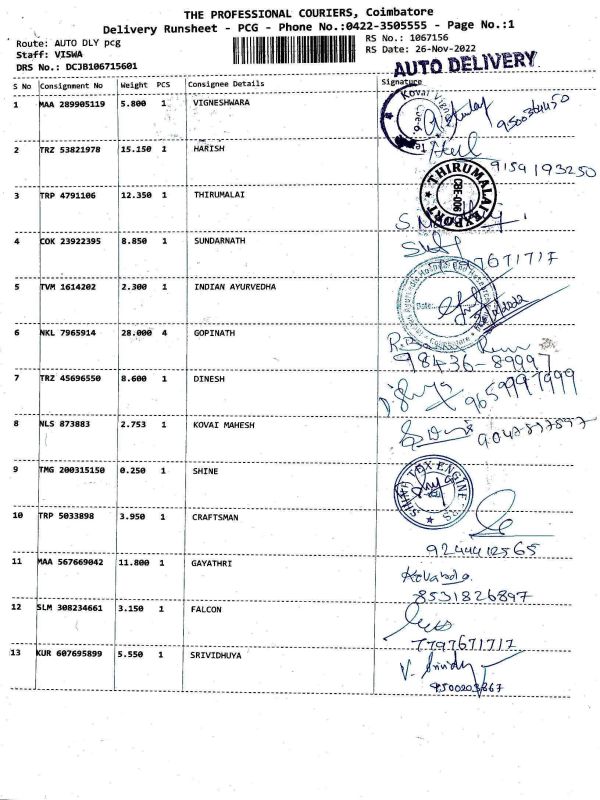 THE PROFESSIONAL COURIERS, Coimbatore
Delivery Runsheet - PCG - Phone No.:0422-3505555 - Page No.:1
Route: AUTO DLY pcg
RS No.: 1067156
Staff: VISWA
RS Date: 26-Nov-2022
DRS No.: DCJB106715601
AUTO DELIVERY
S No Consignment No Weight PCS Consignee Details Signature
1 MAA 289905119 5.800 1 VIGNESHWARA
2 TRZ 53821978 15.150 1 HARISH
9154193250
3 TRP 4791106 12.350 1 THIRUMALAI
THIRUMALAI EXPORT CBE-006
4 COK 23922395 8.850 1 SUNDARNATH
5 TVM 1614202 2.300 1 INDIAN AYURVEDHA
Date:
Coimbatore
6 NKL 7965914 28.000 4 GOPINATH
98436-89997
7 TRZ 45696550 8.600 1 DINESH
8 NLS 873883 2.753 1 KOVAI MAHESH
9 TMG 200315150 0.250 1 SHINE
10 TRP 5033898 3.950 1 CRAFTSMAN
9244412565
11 MAA 567669042 11.800 1 GAYATHRI
8531826897
12 SLM 308234661 3.150 1 FALCON
7797671717
13 KUR 607695899 5.550 1 SRIVIDHUYA
V. Srividy